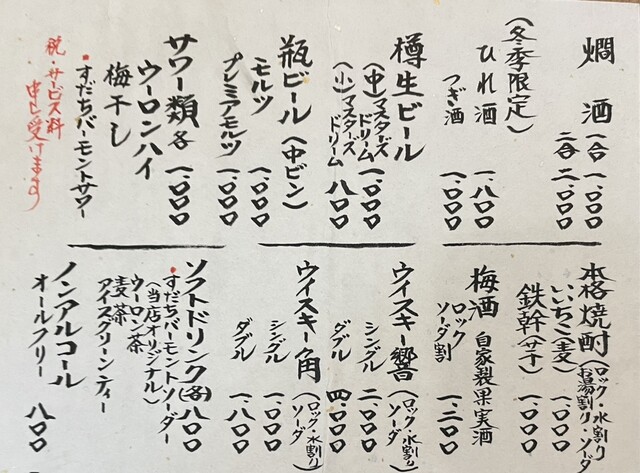 燗酒
一合 一、〇〇〇
二合 二、〇〇〇
(冬季限定)
ひれ酒 一、八〇〇
つぎ酒 一、〇〇〇
樽生ビール
(中)マスターズドリーム 一、〇〇〇
(小)マスターズドリーム 八〇〇
瓶ビール(中ビン)
モルツ 一、〇〇〇
プレミアモルツ 一、〇〇〇
サワー類 各 一、〇〇〇
ウーロンハイ
梅干し
・すだちバーモントサワー
税・サービス料
申し受けます
本格焼酎(ロック・水割り お湯割り・ソーダ)
いいちこ(麦) 一、〇〇〇
鉄幹(芋) 一、〇〇〇
梅酒 自家製果実酒
ロック
ソーダ割 一、二〇〇
ウイスキー響(ロック・水割り ソーダ)
シングル 二、〇〇〇
ダブル 四、〇〇〇
ウイスキー角(ロック・水割り ソーダ)
シングル 一、〇〇〇
ダブル 一、八〇〇
ソフトドリンク(各)八〇〇
・すだちバーモントソーダー
(当店オリジナル)
ウーロン茶
麦茶
アイスグリーンティー
ノンアルコール
オールフリー 八〇〇